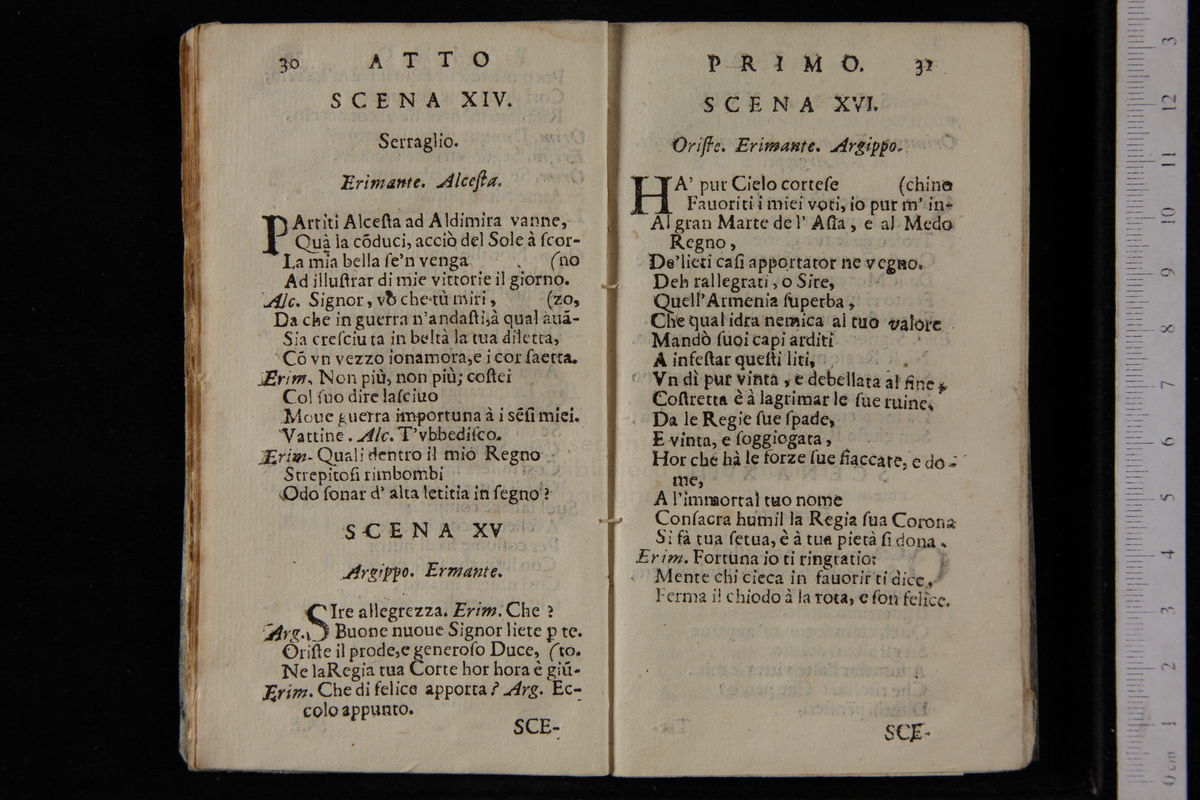 30 ATTO
SCENA XIV.
Serraglio.
Erimante. Alceſta.
PArtiti Alceſta ad Aldimira vanne,
Quà la cõduci, acciò del Sole à ſcor-
La mia bella ſe'n venga (no
Ad illuſtrar di mie vittorie il giorno.
Alc. Signor, vò che tù miri, (zo,
Da che in guerra n'andaſti, à qual auã-
Sia creſciuta in beltà la tua diletta,
Cõ vn vezzo ionamora, e i cor ſaetta.
Erim. Non più, non più; coſtei
Col ſuo dire laſciuo
Moue guerra importuna à i sẽſi miei.
Vattine. Alc. T'vbbediſco.
Erim. Quali dentro il mio Regno
Strepitoſi rimbombi
Odo ſonar d' alta letitia in ſegno?
SCENA XV
Argippo. Ermante.
SIre allegrezza. Erim. Che?
Arg. Buone nuoue Signor liete p te.
Oriſte il prode, e generoſo Duce, (to.
Ne la Regia tua Corte hor hora è giũ-
Erim. Che di felice apporta? Arg. Ec-
colo appunto.
SCE-
PRIMO. 31
SCENA XVI.
Oriſte. Erimante. Argippo.
HA' pur Cielo corteſe (chino
Fauoriti i miei voti, io pur m' in-
Al gran Marte de l' Aſia, e al Medo
Regno,
De'lieti caſi apportator ne vegno.
Deh rallegrati, o Sire,
Quell'Armenia ſuperba,
Che qual idra nemica al tuo valore
Mandò ſuoi capi arditi
A infeſtar queſti liti,
Vn dì pur vinta, e debellata al fine,
Coſtretta è à lagrimar le ſue ruine.
Da le Regie ſue ſpade,
E vinta, e ſoggiogata,
Hor che hà le forze ſue fiaccate, e do-
me,
A l'immortal tuo nome
Conſacra humil la Regia ſua Corona
Si fà tua ſerua, è à tua pietà ſi dona.
Erim. Fortuna io ti ringratio:
Mente chi cieca in fauorir ti dice,
Ferma il chiodo à la rota, e ſon felice.
SCE-